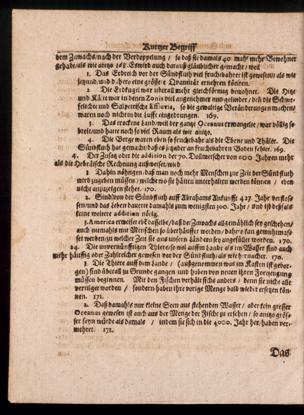 Kurtzer Begriff
dem Zuwachs nach der Verdoppelung / so daß sie damals 40. mahl mehr Bewohner
gehabt / als wie anitzo 168. Es wird auch darauß glaublicher gemacht / weil
1. Das Erdreich vor der Sündfluth viel fruchtbahrer ist gewesen als wie
jetzund / und daher eine größere Quantität ernehren können.
2. Die Erdkugel war überall mehr gleichförmig bewohnt. Die Hitz
und Kälte war in denen Zonis viel angenehmer und gelinder / des die Schwe-
felichte und Salpetrische Effluvia, so die gewaltige Veränderungen machen /
waren noch nicht in die Lufft eingedrungen. 169.
3. Das trockne Land / weil der ganze Oceanus mangelte / war völlig so
breit / und hatte noch so viel Raum als wie anitzo.
4. Die Berge waren eben so fruchtbar als die Ebene und Thäler. Die
Sündfluth hat gemacht daß es jezunder an fruchtbahrem Boden fehlet. 169.
4. Der Zusatz oder die addition der 70. Dollmetscher von 1000 Jahren mehr
als die Hebräische Rechnung außweiset / wird
1. Dahin nöhtigen / daß man noch mehr Menschen zur Zeit der Sündfluth
wird zugeben müssen / welche wo sie hätten unterhalten werden können / eben
nicht anzuzeigen stehet. 170.
2. Sind von der Sündfluth auff Abrahams Ankunfft 427 Jahr verflos-
sen / und das Leben dauert damals zum wenigsten 300. Jahr / und ist deshalb
keine weitere addition nötig.
3. America erweiset das dasselbe / daß der Zuwachs allgemählich sey geschehen /
auch niemals mit Menschen so überhäuffet worden / daher es kan gemuthmas-
set werden zu welcher Zeit sie aus andern Ländern sey angefüllet worden. 170.
24. Die unvernünfftigen Thiere so wol auff dem Lande als im Wasser sind auch
mehr häuffig oder Zahlreicher gewesen vor der Sündfluth als wie hernacher. 170.
1. Die Thiere auff dem Lande / (außgenommen was im Kasten ist gebor-
gen) sind überall zu Grunde gangen und haben von neuen ihren Fortzeugung
müssen beginnen. Mit den Fischen verhält sichs anders / denn sie nicht alle
vertilget worden / sondern haben ihre vorige Menge bald wieder ersetzen kön-
nen. 171.
2. Daß damahls nur kleine Seen aus stehenden Wasser / aber kein grosser
Oceanus gewesen ist auch aus der Menge der Fische zu ersehen / so anitzo größ-
ser seyn würde als damals / indem sie sich in die 4000. Jahr her haben ver-
mehret. 171.
Das